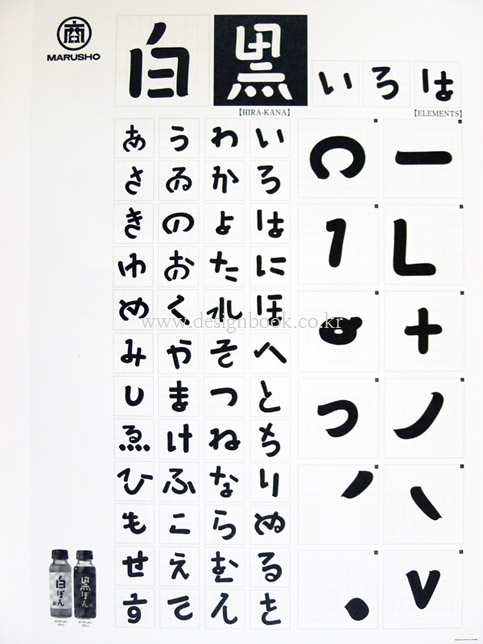 商
MARUSHO
白黒いろは
【HIRA-KANA】
【ELEMENTS】
いろはにほへとちりぬるを
わかよたれそつねならむん
うゐのおくやまけふこえて
あさきゆめみしゑひもせす
www.designbook.co.kr
白ぽん
黒ぽん